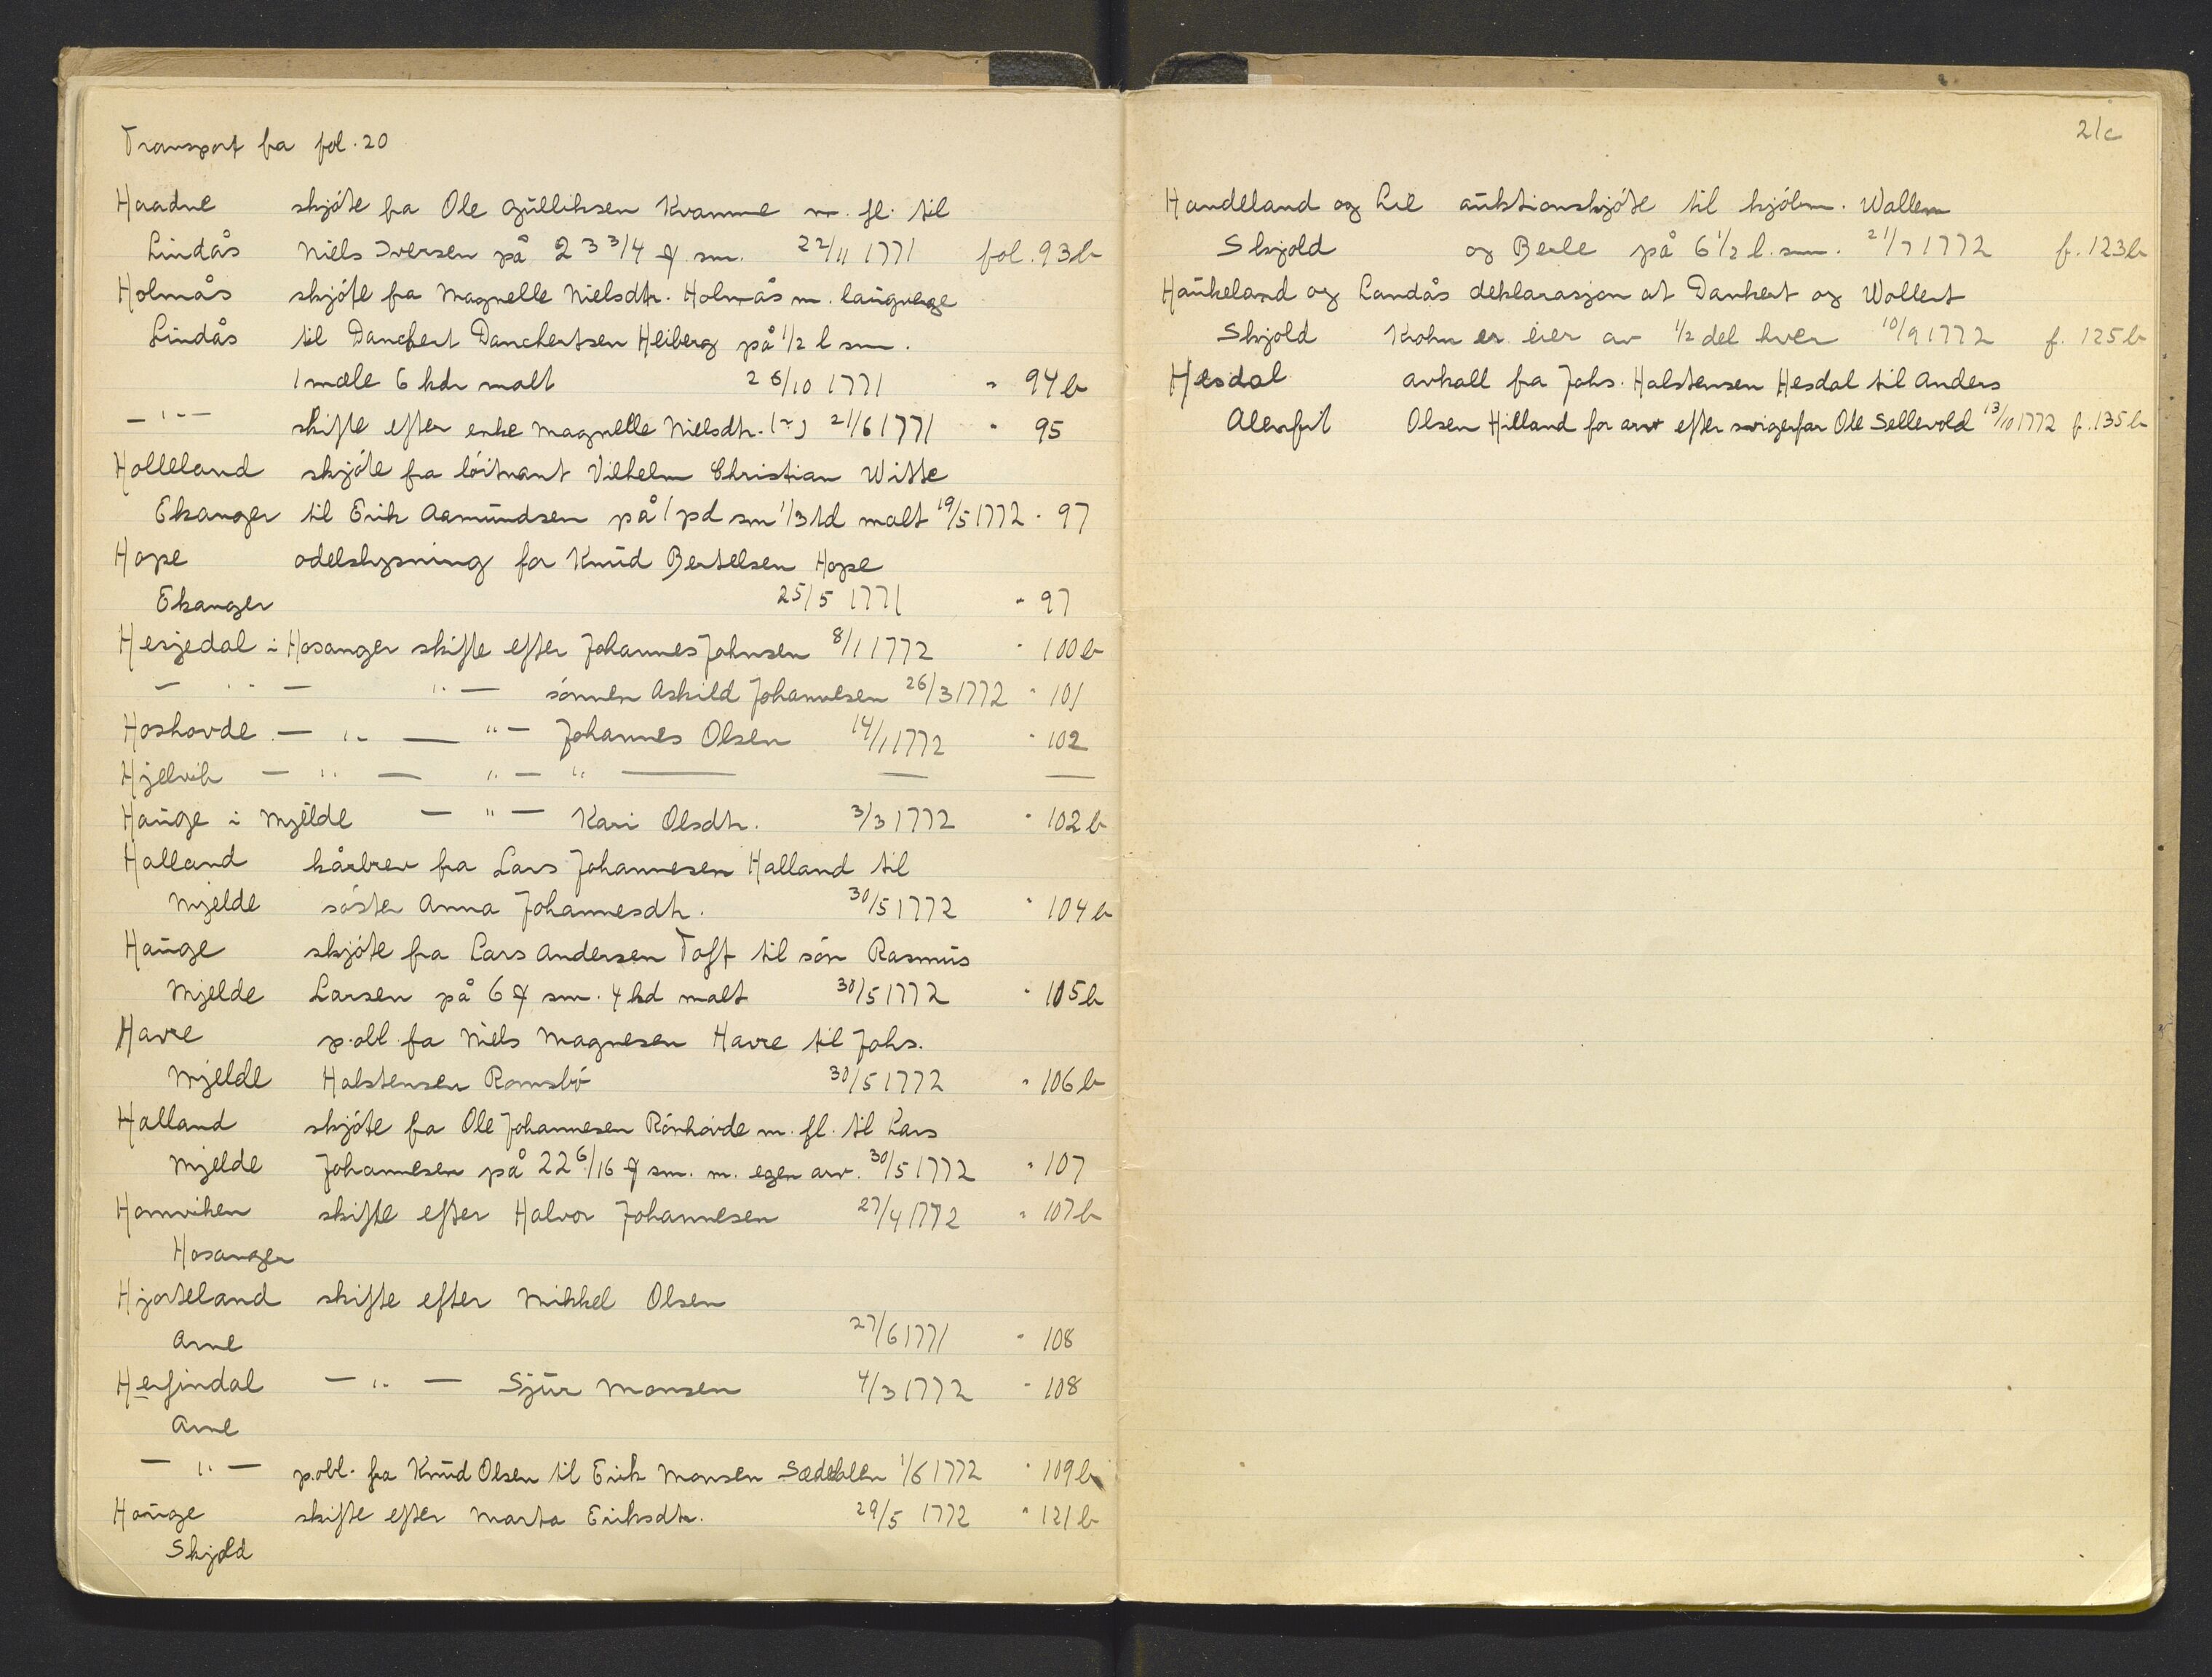 Transport fra fol. 20
Haadne skjöte fra Ole Gulliksen Kvamme m. fl. til
Lindås Niels Iversen på 2 3 3/4 sm. 22/11 1771 fol. 93b
Holmås skjöte fra Magnelle Nielsdtr. Holmås m. laugverge
Lindås til Danchert Danchertsen Heiberg på 1/2 l sm.
1 mæle 6 kdr malt 26/10 1771 " 94b
— " — skifte efter enke Magnelle Nielsdtr. 21/6 1771 " 95
Holleland skjöte fra löitnant Vilhelm Christian Witte
Ekanger til Erik Aamundsen på 1 pd sm 1/3 td malt 19/5 1772 " 97
Hope odelslysning for Knud Bertelsen Hope
Ekanger 25/5 1771 " 97
Hesjedal i Hosanger skifte efter Johannes Johnsen 8/1 1772 " 100b
— " — " — sönnen Askild Johannesen 26/3 1772 " 101
Hoshovde — " — " — Johannes Olsen 14/1 1772 " 102
Hjelvik — " — " — " — — —
Hauge i Mjelde — " — Kari Olsdtr. 3/3 1772 " 102b
Halland kårbrev fra Lars Johannesen Halland til
Mjelde söster Anna Johannesdtr. 30/5 1772 " 104b
Hauge skjöte fra Lars Andersen Toft til sön Rasmus
Mjelde Larsen på 6 sm. 4 kd malt 30/5 1772 " 105b
Havre p.obl. fra Niels Magnesen Havre til Johs.
Mjelde Halstensen Romsbö 30/5 1772 " 106b
Halland skjöte fra Ole Johannesen Rönhovde m. fl. til Lars
Mjelde Johannesen på 22 6/16 sm. m. egen arv. 30/5 1772 " 107
Homviken skifte efter Halvor Johannesen 27/4 1772 " 107b
Hosanger
Hjorteland skifte efter Mikkel Olsen
Arne 27/6 1771 " 108
Herfindal — " — Sjur Monsen 4/3 1772 " 108
Arne
— " — p.obl. fra Knud Olsen til Erik Monsen Sædalen 1/6 1772 " 109b
Hauge skifte efter Marta Eriksdtr. 29/5 1772 " 121b
Skjold
21c
Handeland og Lie auktionskjöte til kjöbm. Wallem
Skjold og Berle på 6 1/2 l. sm. 21/7 1772 f. 123b
Haukeland og Landås deklarasjon at Dankert og Wollert
Skjold Krohn er eier av 1/2 del hver 10/9 1772 f. 125b
Hesdal avkall fra Johs. Halstensen Hesdal til Anders
Alenfit Olsen Hilland for arv efter svigerfar Ole Sellevold 13/10 1772 f. 135b